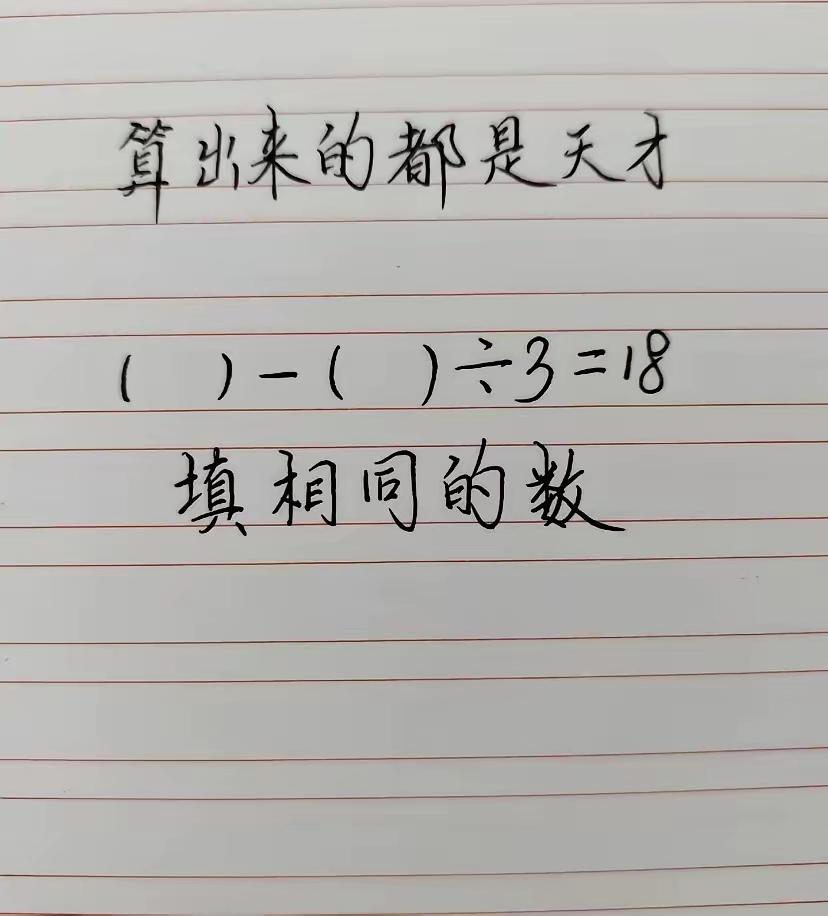 算出来的都是天才
( )-( )÷3=18
填相同的数